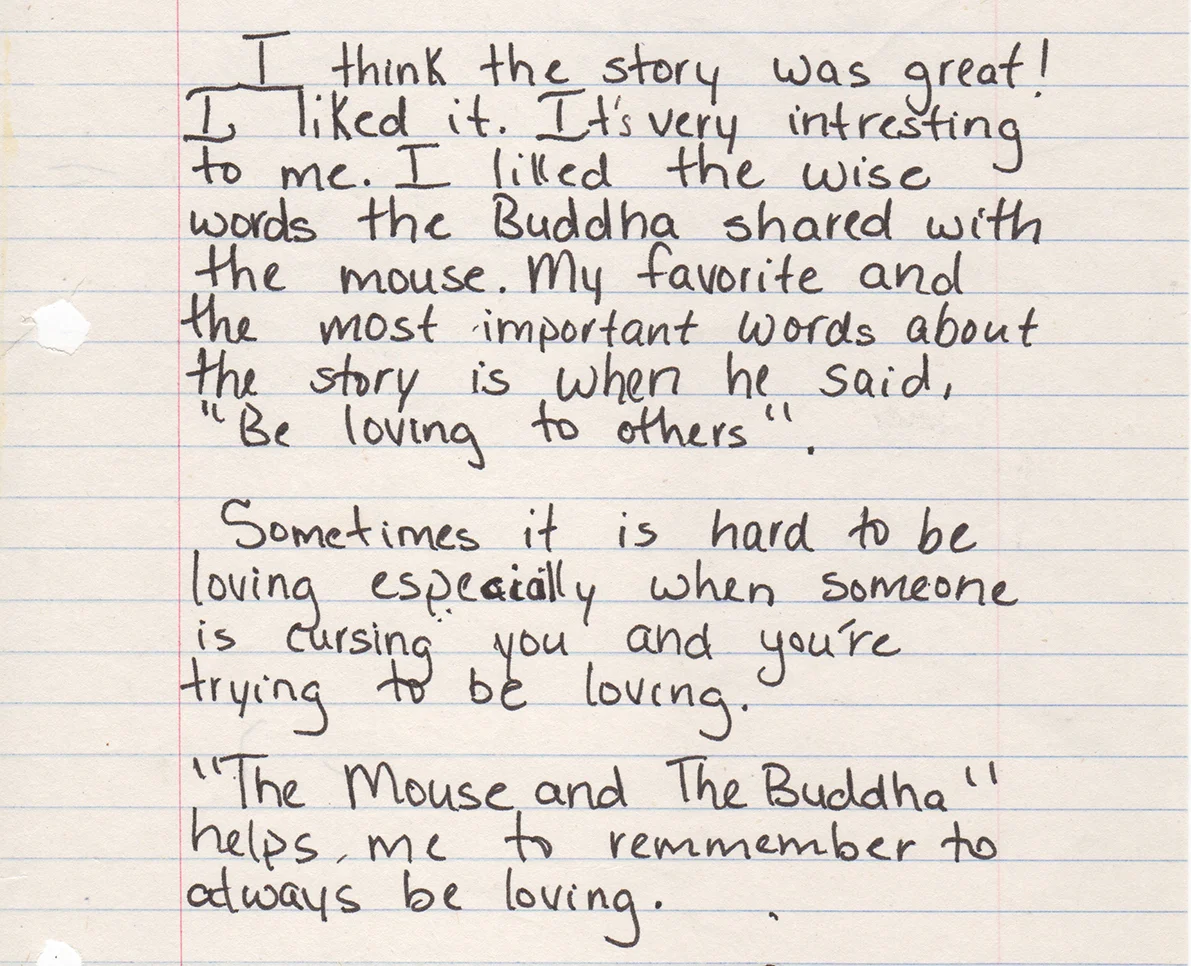 I think the story was great!
I liked it. It's very intresting
to me. I liked the wise
words the Buddha shared with
the mouse. My favorite and
the most important words about
the story is when he said,
"Be loving to others".
Sometimes it is hard to be
loving especially when someone
is cursing you and you're
trying to be loving.
"The Mouse and The Buddha"
helps me to remmember to
always be loving.